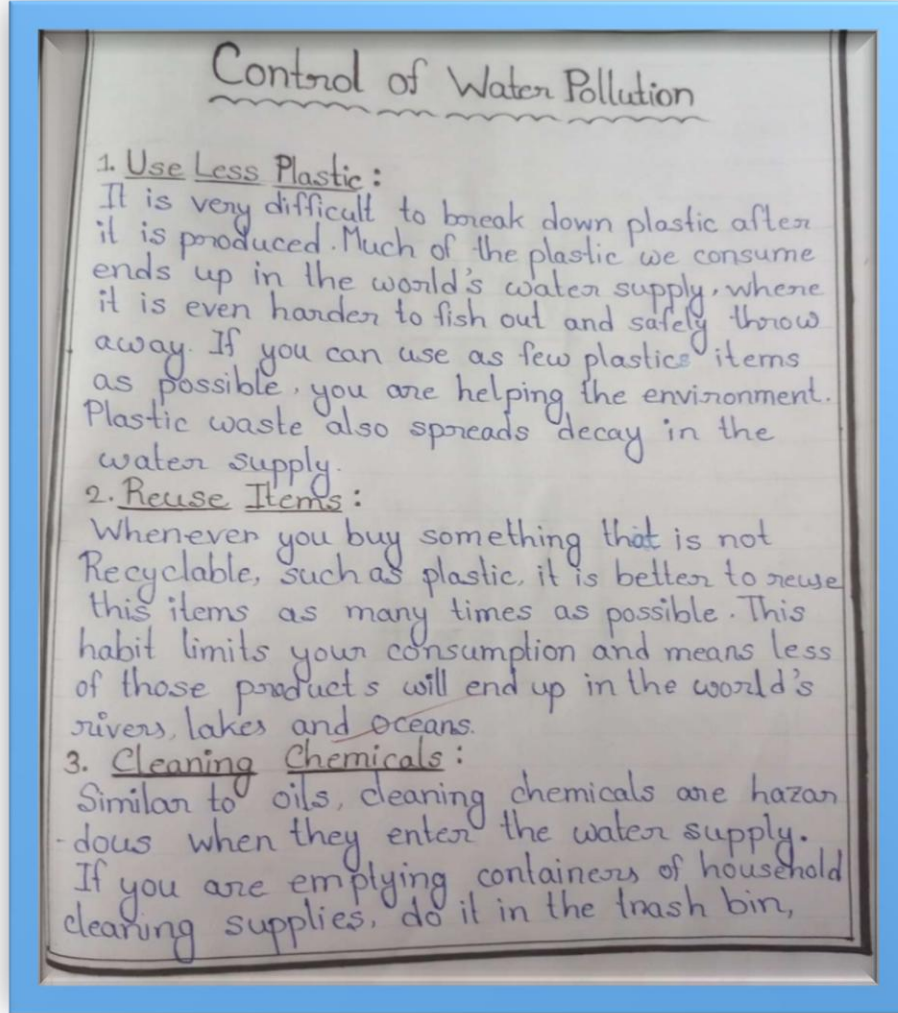 Control of Water Pollution
1. Use Less Plastic :
It is very difficult to break down plastic after
it is produced. Much of the plastic we consume
ends up in the world's water supply, where
it is even harder to fish out and safely throw
away. If you can use as few plastics items
as possible, you are helping the environment.
Plastic waste also spreads decay in the
water supply.
2. Reuse Items :
Whenever you buy something that is not
Recyclable, such as plastic, it is better to reuse
this items as many times as possible. This
habit limits your consumption and means less
of those products will end up in the world's
rivers, lakes and oceans.
3. Cleaning Chemicals :
Similar to oils, cleaning chemicals are hazar
-dous when they enter the water supply.
If you are emptying containers of household
cleaning supplies, do it in the trash bin,